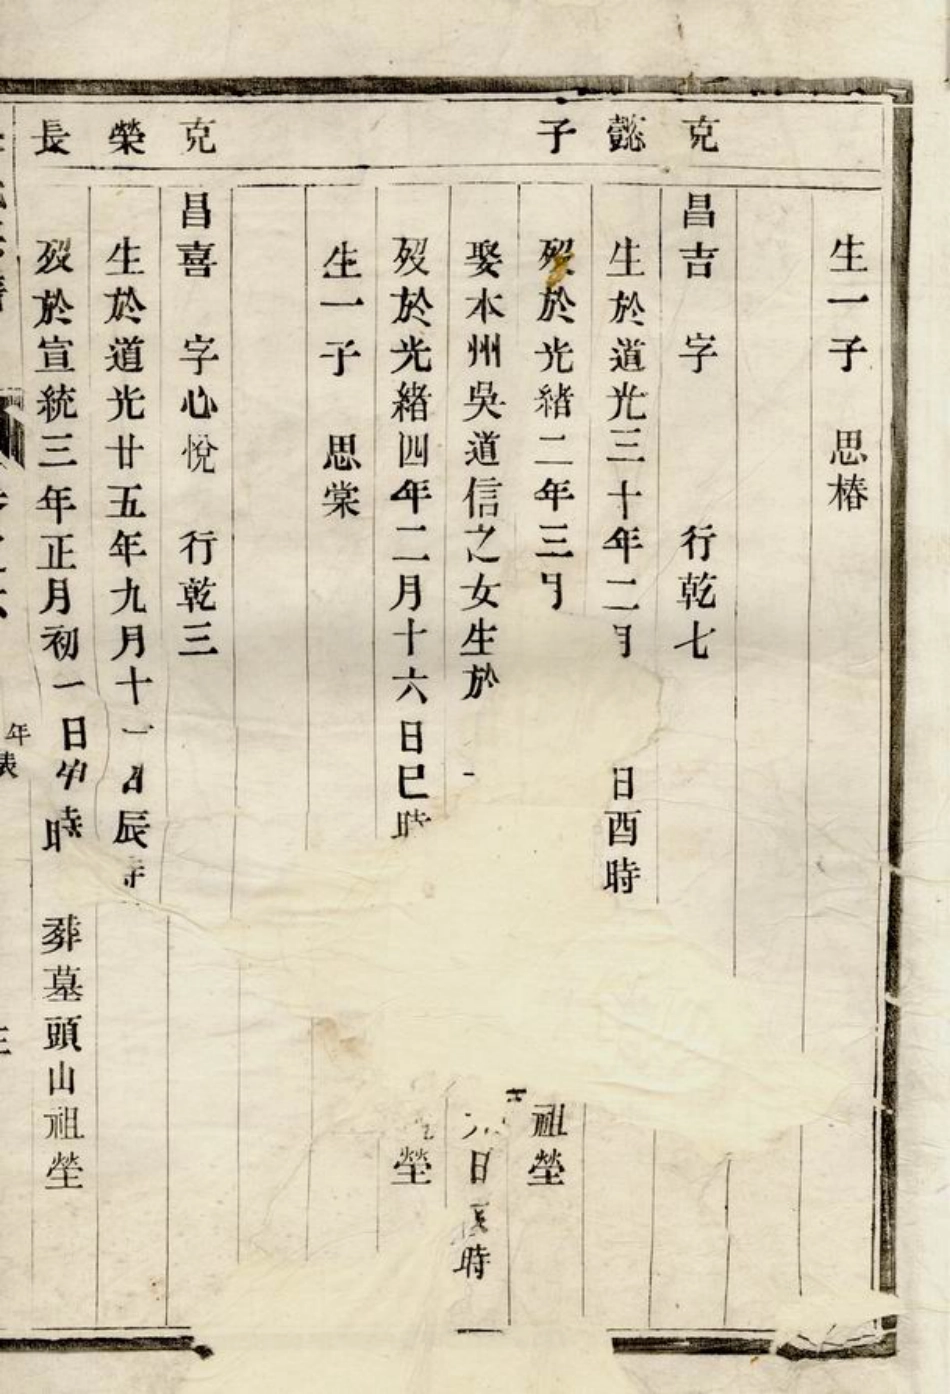 生一子 思椿
克
昌吉 字 行乾七
懿
生於道光三十年二月 日酉時
子
歿於光緒二年三月 祖塋
娶本州吳道信之女生於 日 時
歿於光緒四年二月十六日巳時 塋
生一子 思棠
克
昌喜 字心悅 行乾三
榮
生於道光廿五年九月十一日辰時
長
歿於宣統三年正月初一日 時 葬墓頭山祖塋
年表